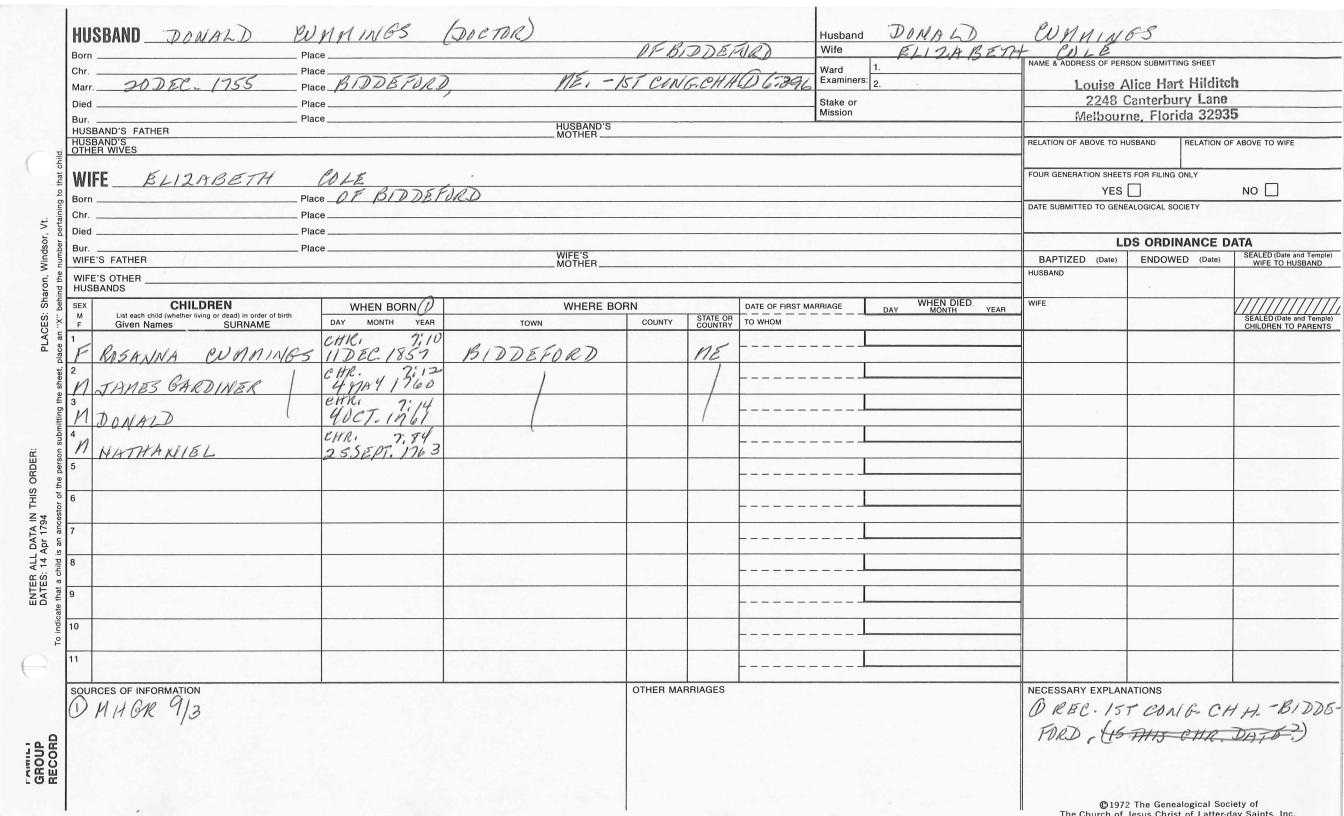 HUSBAND DONALD CUMMINGS (DOCTOR)
Born Place OF BIDDEFORD
Chr. Place
Marr. 20 DEC. 1755 Place BIDDEFORD, ME. - 1ST CONG. CHH. ① 6:396
Died Place
Bur. Place
HUSBAND'S FATHER HUSBAND'S MOTHER
HUSBAND'S OTHER WIVES
Husband DONALD CUMMINGS
Wife ELIZABETH COLE
Ward Examiners: 1.
2.
Stake or Mission
NAME & ADDRESS OF PERSON SUBMITTING SHEET
Louise Alice Hart Hilditch
2248 Canterbury Lane
Melbourne, Florida 32935
RELATION OF ABOVE TO HUSBAND RELATION OF ABOVE TO WIFE
FOUR GENERATION SHEETS FOR FILING ONLY
YES NO
DATE SUBMITTED TO GENEALOGICAL SOCIETY
WIFE ELIZABETH COLE
Born Place OF BIDDEFORD
Chr. Place
Died Place
Bur. Place
WIFE'S FATHER WIFE'S MOTHER
WIFE'S OTHER HUSBANDS
LDS ORDINANCE DATA
BAPTIZED (Date) ENDOWED (Date) SEALED (Date and Temple) WIFE TO HUSBAND
HUSBAND
WIFE
SEALED (Date and Temple) CHILDREN TO PARENTS
SEX M F CHILDREN WHEN BORN ① WHERE BORN DATE OF FIRST MARRIAGE WHEN DIED
List each child (whether living or dead) in order of birth
Given Names SURNAME DAY MONTH YEAR TOWN COUNTY STATE OR COUNTRY TO WHOM DAY MONTH YEAR
1 CHR. 7:10
F ROSANNA CUMMINGS 11 DEC 1857 BIDDEFORD ME
2 CHR. 7:12
M JAMES GARDINER 4 MAY 1760
3 CHR. 7:14
M DONALD 4 OCT. 1761
4 CHR. 7:84
M NATHANIEL 25 SEPT. 1763
5
6
7
8
9
10
11
SOURCES OF INFORMATION
① MHGR 9/3
OTHER MARRIAGES
NECESSARY EXPLANATIONS
① REC. 1ST CONG CHH. - BIDDE-
FORD, (IS THIS CHR. DATE?)
©1972 The Genealogical Society of
The Church of Jesus Christ of Latter-day Saints, Inc.
PLACES: Sharon, Windsor, Vt.
ENTER ALL DATA IN THIS ORDER:
DATES: 14 Apr 1794
To indicate that a child is an ancestor of the person submitting the sheet, place an "X" behind the number pertaining to that child.
FAMILY
GROUP
RECORD